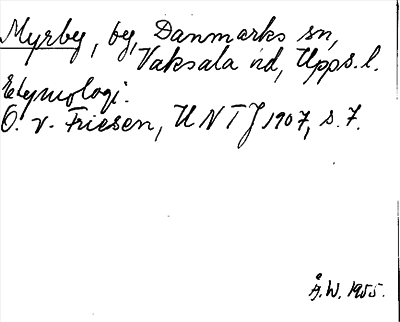 Myrby, by, Danmarks sn,
Vaksala hd, Upps. l.
Etymologi.
O. v. Friesen, UNTJ 1907, s. 7.
Å. W. 1955.